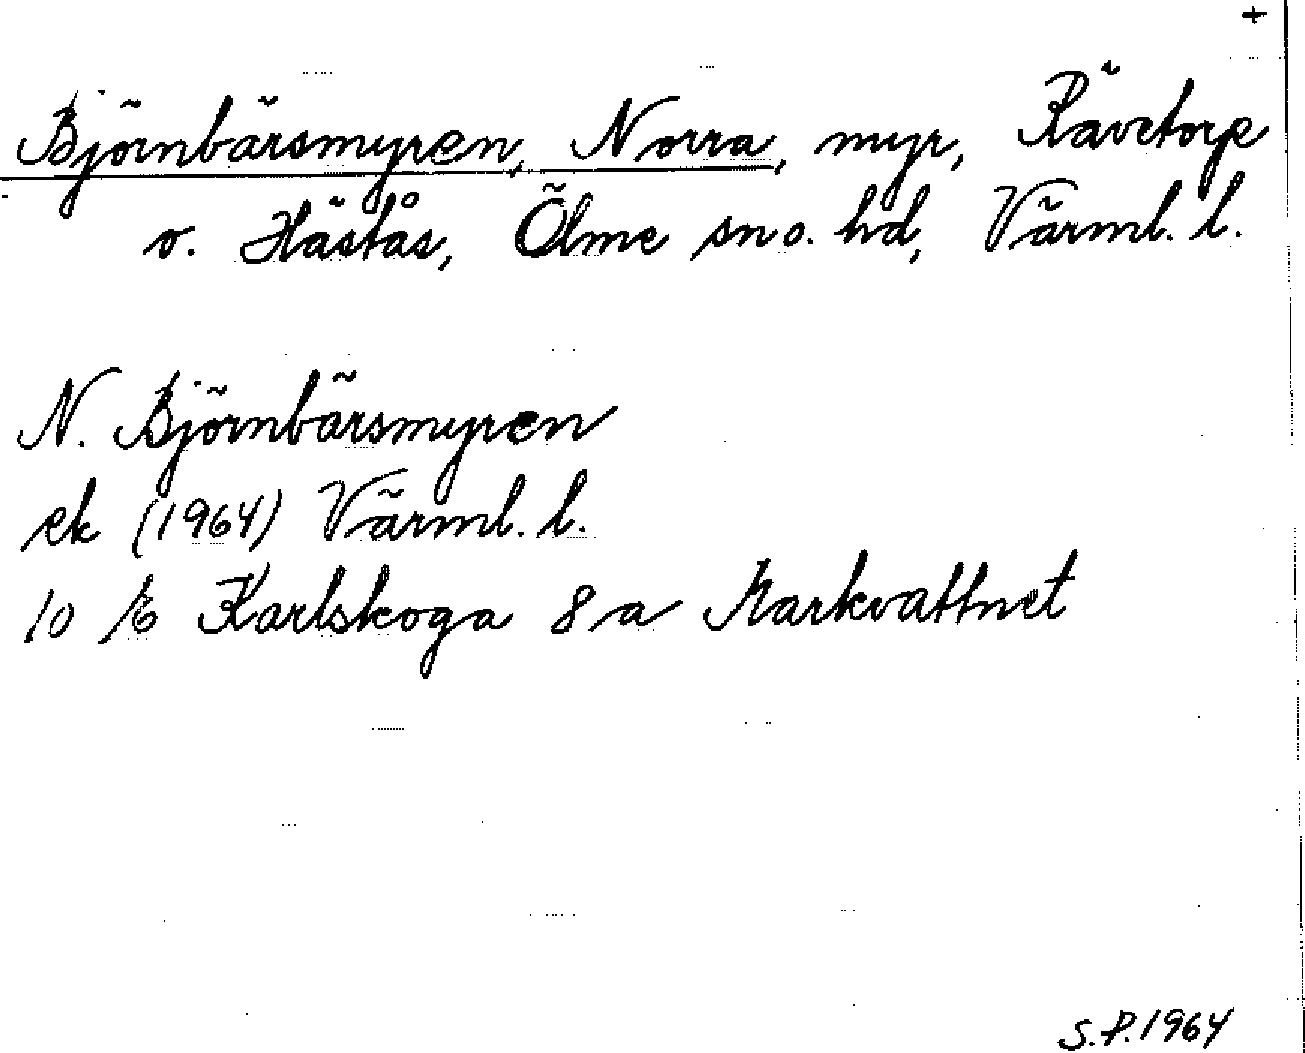 +
Björnbärsmyren, Norra, myr, Rävetorp
o. Hästås, Ölme sn o. hd, Värml. l.
N. Björnbärsmyren
ek (1964) Värml. l.
10 E Karlskoga 8 a Markvattnet
S.P. 1964